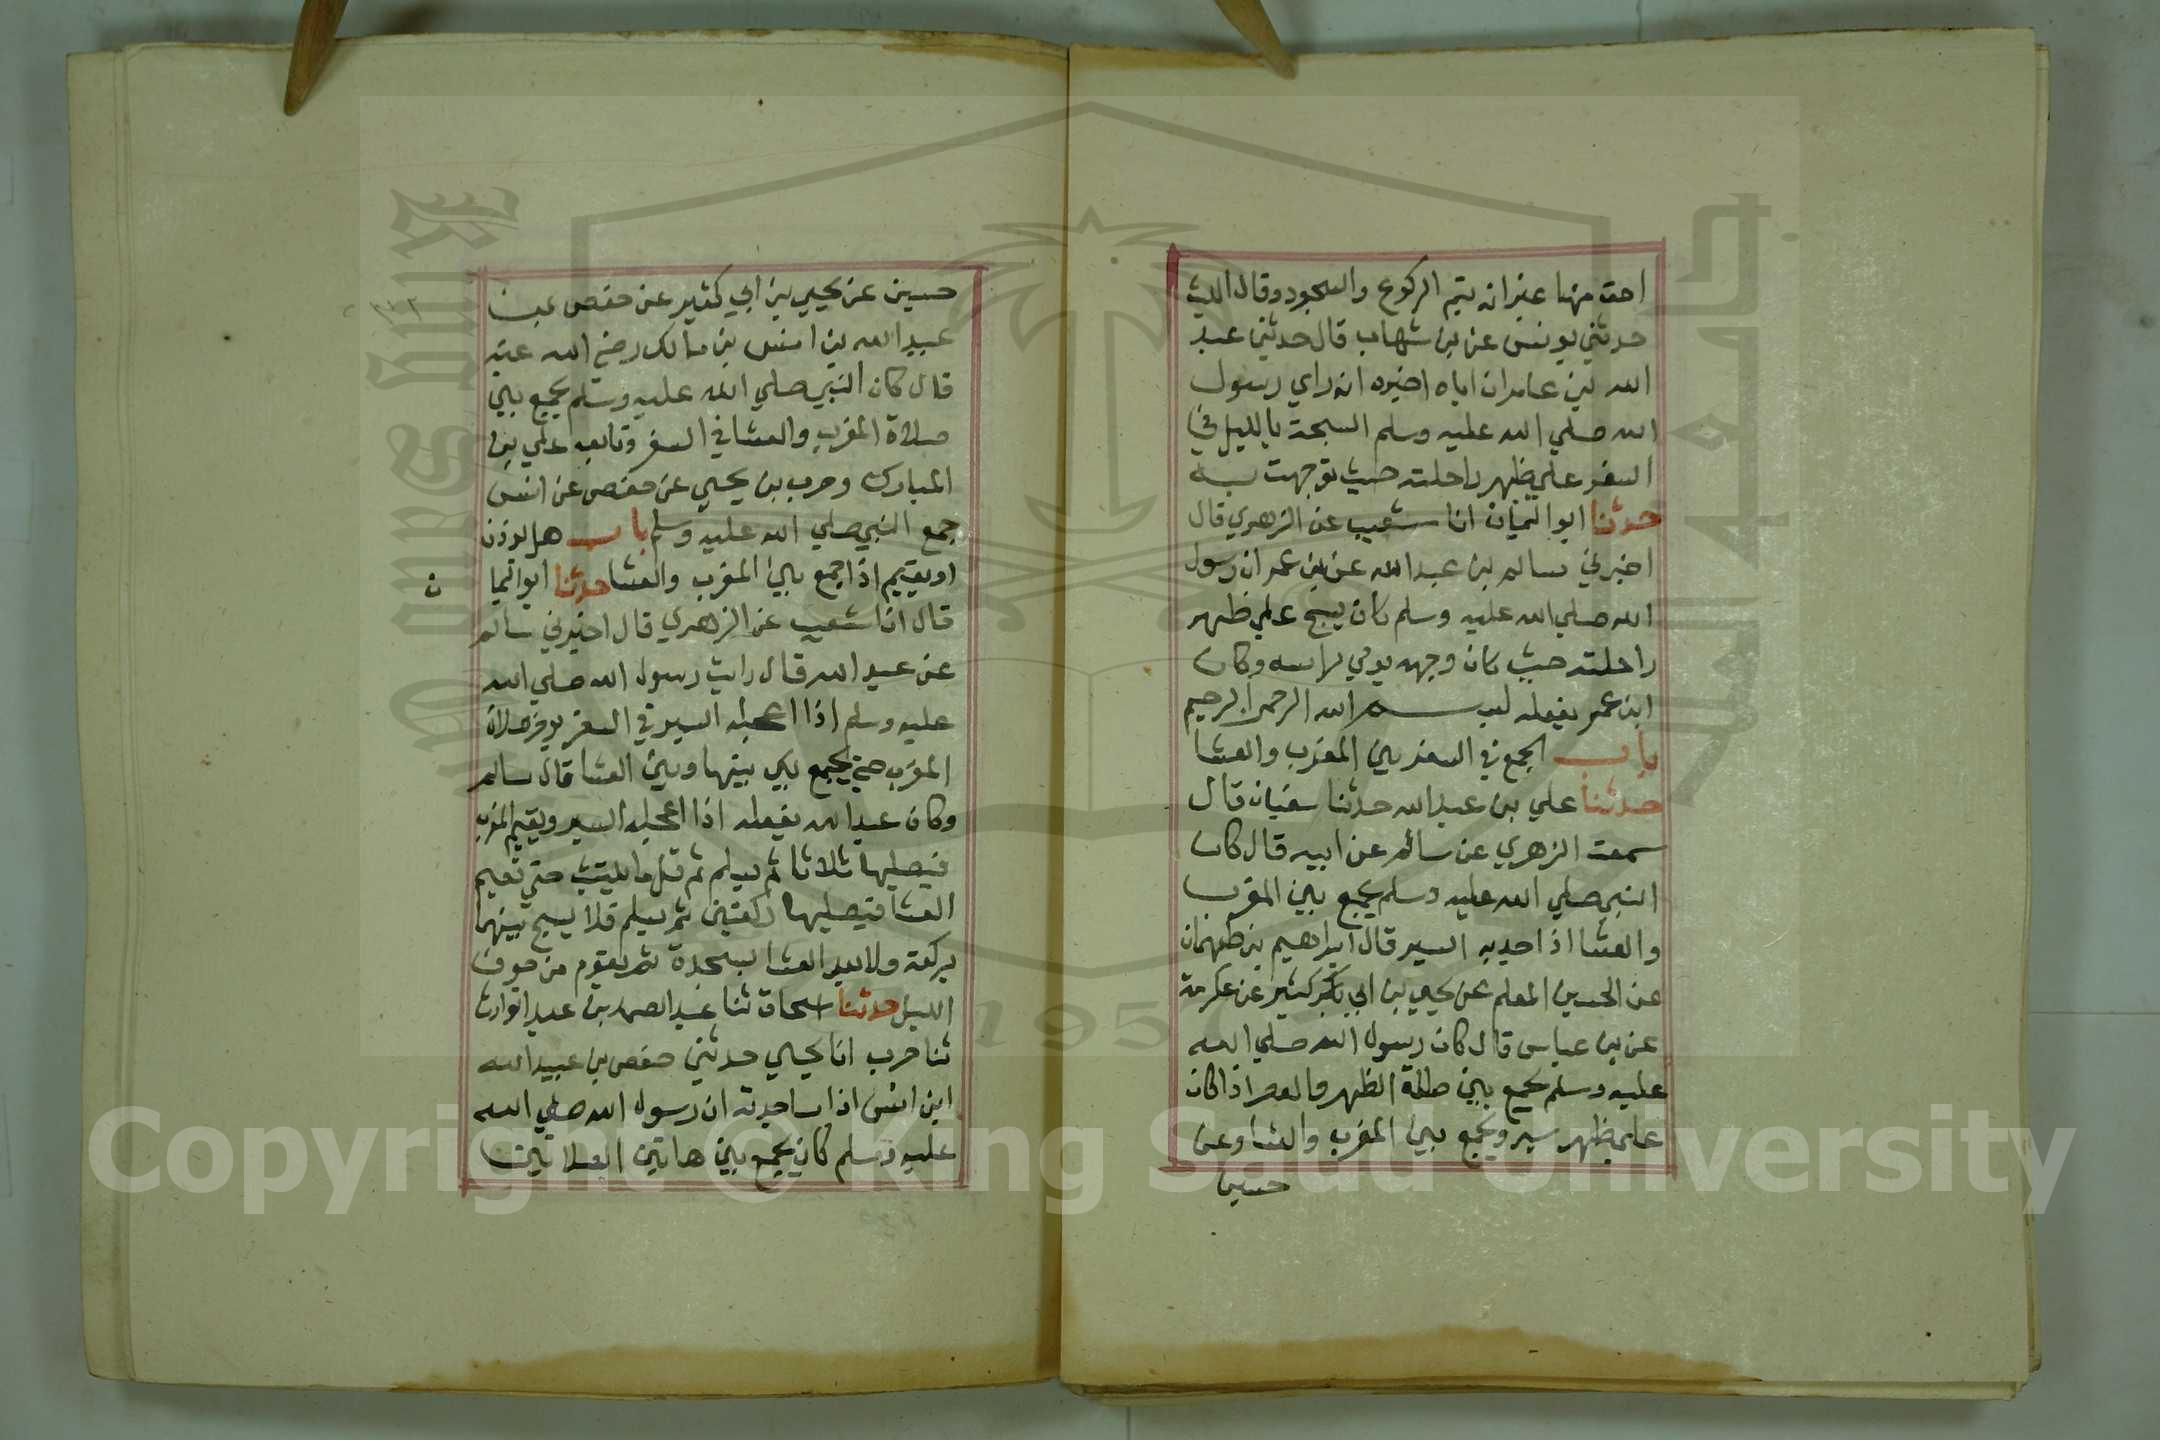 اخف منها غير انه يتم الركوع والسجود وقال الليث
حدثني يونس عن بن شهاب قال حدثني عبد
الله بن عامر ان اباه اخبره انه راي رسول
الله صلي الله عليه وسلم السبحة بالليل في
السفر علي ظهر راحلته حيث توجهت به
حدثنا ابو اليمان انا شعيب عن الزهري قال
اخبرني سالم بن عبد الله عن بن عمر ان رسول
الله صلي الله عليه وسلم كان يسبح علي ظهر
راحلته حيث كان وجهه يومي براسه وكان
ابن عمر يفعله بسم الله الرحمن الرحيم
باب الجمع في السفر بين المغرب والعشا
حدثنا علي بن عبد الله حدثنا سفيان قال
سمعت الزهري عن سالم عن ابيه قال كان
النبي صلي الله عليه وسلم يجمع بين المغرب
والعشا اذا جد به السير قال ابراهيم بن طهمان
عن الحسين المعلم عن يحيي بن ابي كثير عن عكرمة
عن بن عباس قال كان رسول الله صلي الله
عليه وسلم يجمع بين صلاة الظهر والعصر اذا كان
علي ظهر سير ويجمع بين المغرب والعشا وعن
حسين
حسين عن يحيي بن ابي كثير عن حفص بن
عبيد الله بن انس بن مالك رضي الله عنه
قال كان النبي صلي الله عليه وسلم يجمع بين
صلاة المغرب والعشا في السفر وتابعه علي بن
المبارك وحرب بن يحيي عن حفص عن انس
جمع النبي صلي الله عليه وسلم باب هل يوذن
او يقيم اذا جمع بين المغرب والعشا حدثنا ابو اليما
ن
قال انا شعيب عن الزهري قال اخبرني سالم
عن عبد الله قال رايت رسول الله صلي الله
عليه وسلم اذا اعجله السير في السفر يوخر صلاة
المغرب حتي يجمع بين بينها وبين العشا قال سالم
وكان عبد الله يفعله اذا اعجله السير ويقيم المغرب
فيصليها ثلاثا ثم يسلم ثم قل ما يلبث حتي يقيم
العشا فيصليها ركعتين ثم يسلم فلا يسبح بينهما
بركعة ولا بعد العشا بسجدة ثم يقوم من جوف
الليل حدثنا اسحاق ثنا عبد الصمد بن عبد الوارث
ثنا حرب انا يحيي حدثني حفص بن عبيد الله
ابن انس ان انسا حدثه ان رسول الله صلي الله
عليه وسلم كان يجمع بين هاتين الصلاتين
Copyright © King Saud University
King Saud University
1957